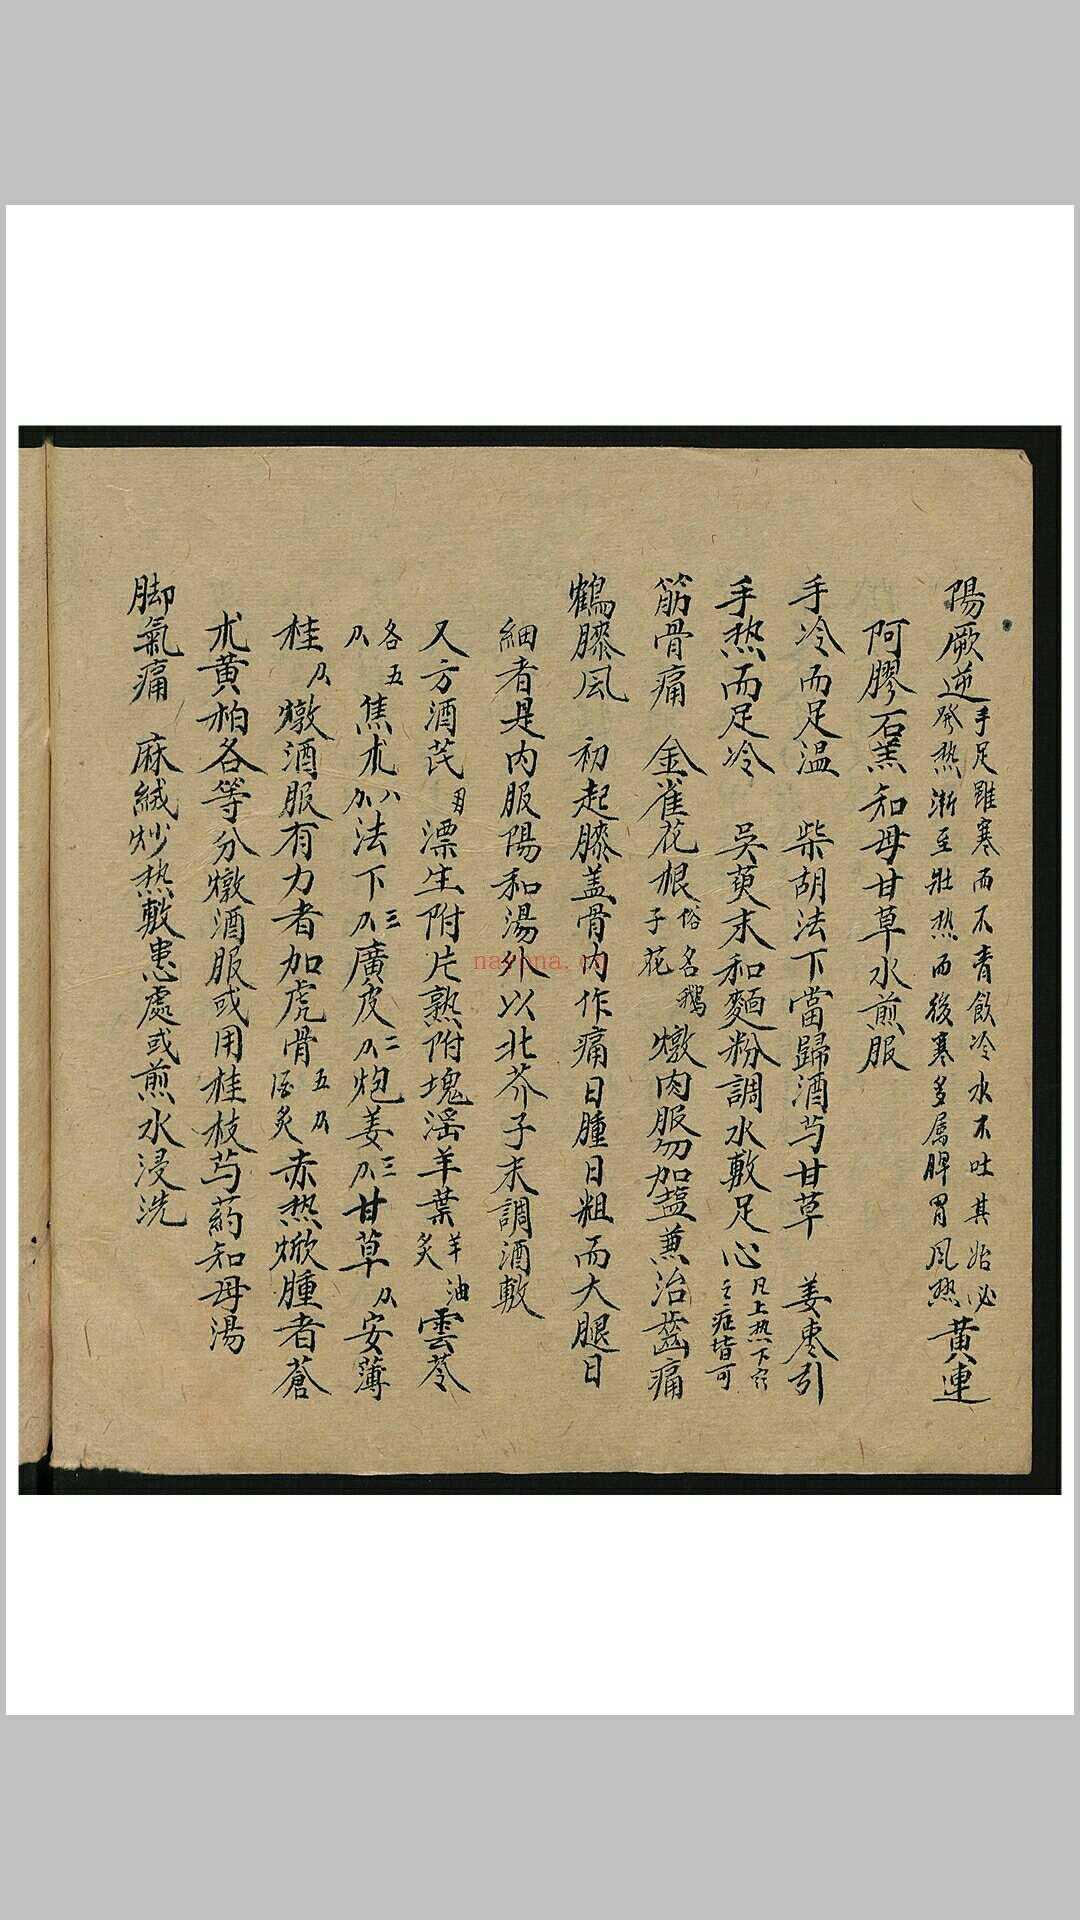 陽厥逆手足雖寒而不青飲冷水不吐其始必發热漸至壯热而後寒多屬脾胃風热黄連
阿膠石羔知母甘草水煎服
手冷而足温 柴胡法下當歸酒芍甘草 姜枣引
手热而足冷 吳萸末和麵粉調水敷足心凡上热下寒之症皆可
筋骨痛 金雀花根俗名鵝子花燉肉服勿加盐兼治齒痛
鶴膝風 初起膝盖骨内作痛日腫日粗而大腿日
細者是内服陽和湯外以北芥子末調酒敷
又方酒芪 漂生附片熟附塊滛羊葉羊油炙雲苓
各五 焦朮八 法下三 廣皮二 炮姜三 甘草 安薄
桂 燉酒服有力者加虎骨五 酒炙赤热焮腫者蒼
朮黄柏各等分燉酒服或用桂枝芍药知母湯
脚氣痛 麻絨炒热敷患處或煎水浸洗
nayona.cn